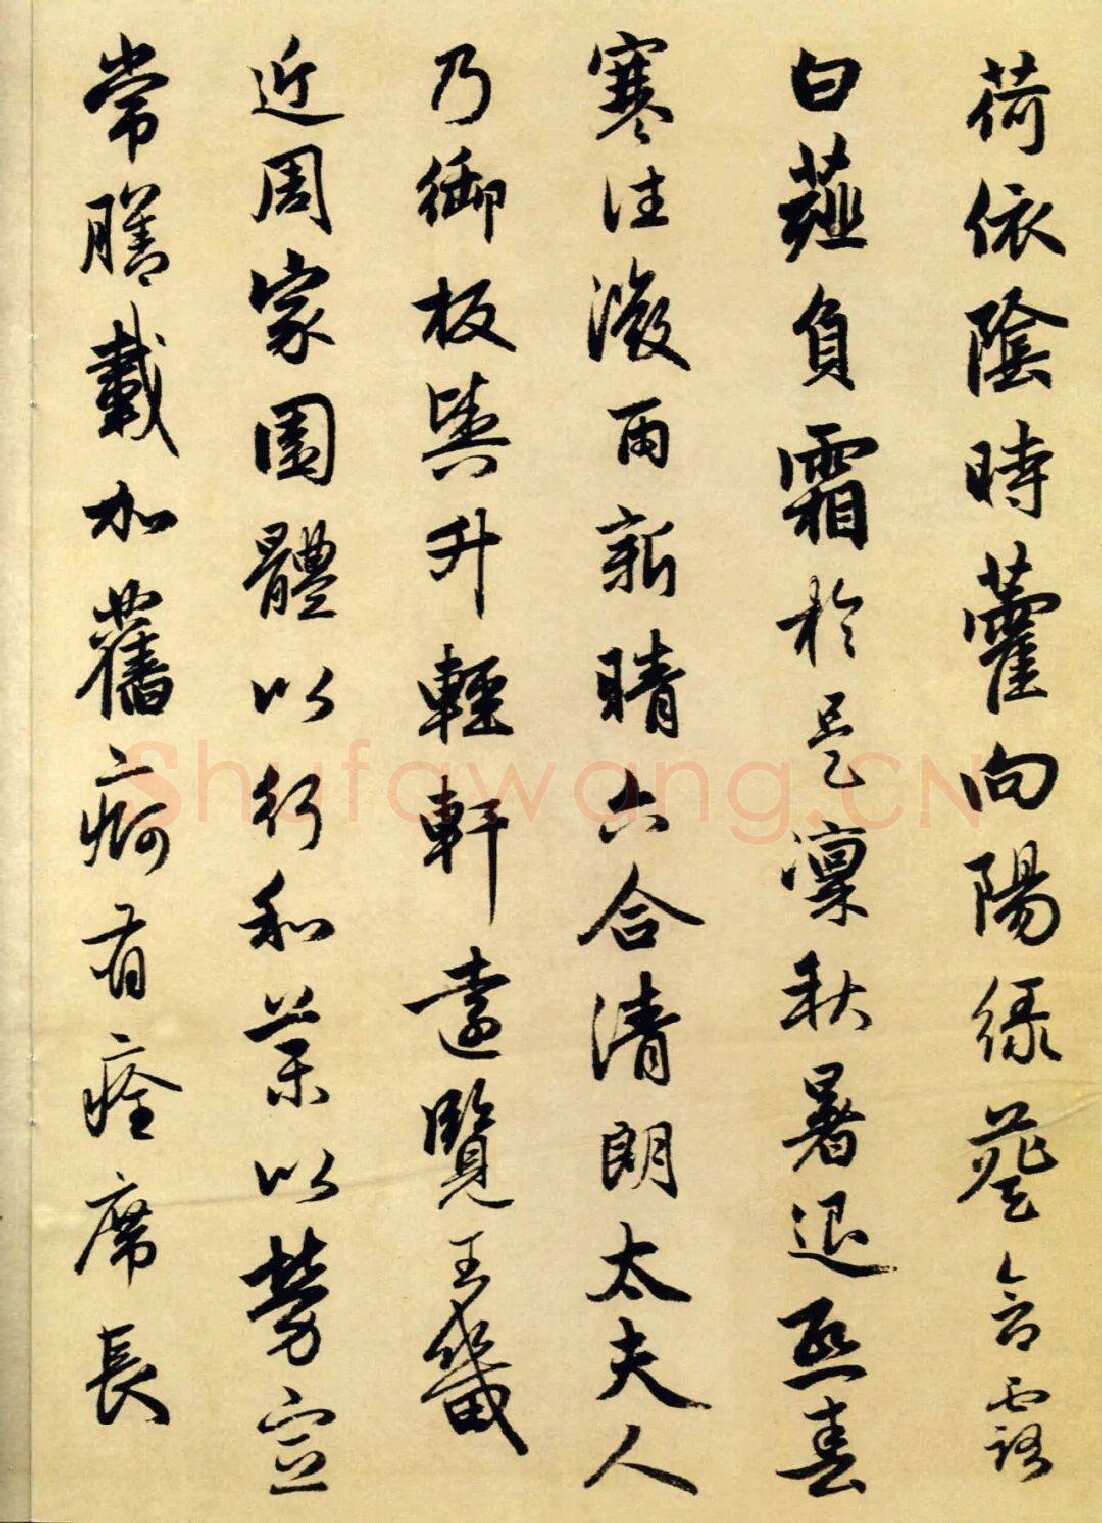 荷依陰時藿向陽綠葵含露
白薤負霜於是凜秋暑退熙春
寒往溦雨新晴六合清朗太夫人
乃御板輿升輕軒遠覽王畿
近周家園體以行和藥以勞宣
常膳載加舊痾有痊席長
Shufawang.CN